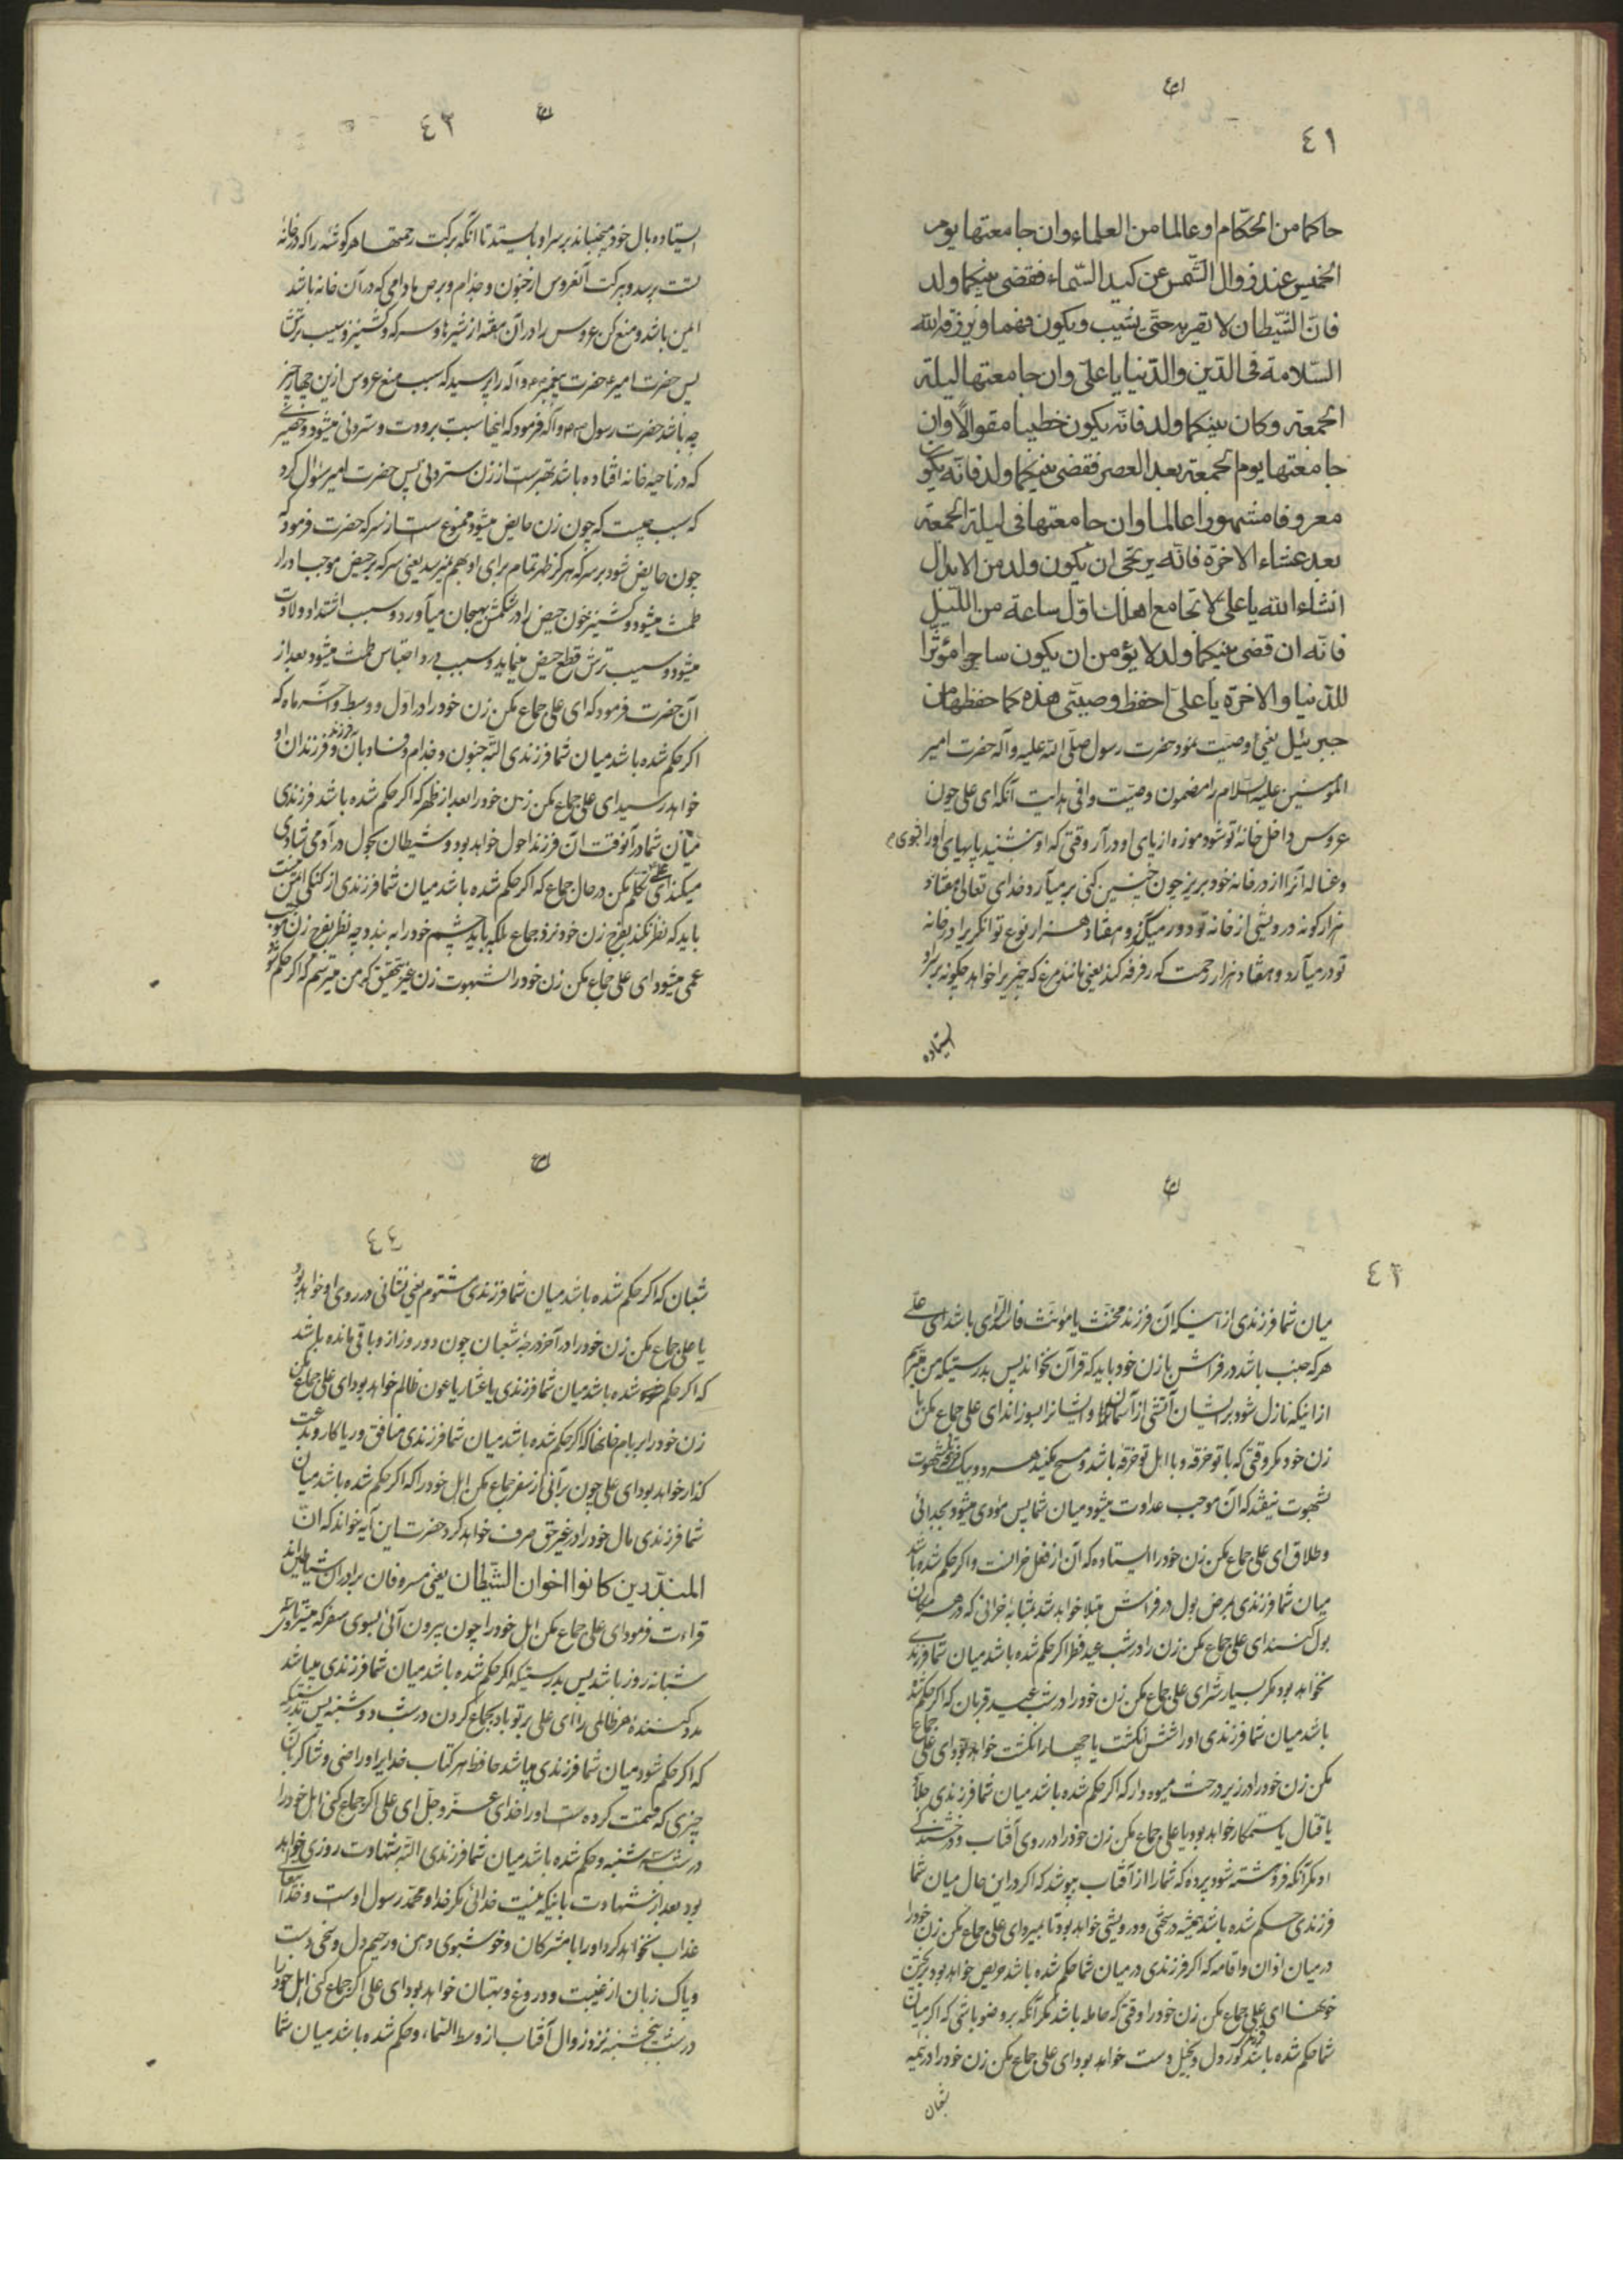 ٤١
حاكما من الحكّام او عالما من العلماء وان جامعتها يوم
الخميس عند زوال الشّمس عن كبد السّماء فقضى بينكما ولد
فانّ الشّيطان لا تقربه حتّى يشيب ويكون فهما ويرزقه الله
السّلامة فى الدّين والدّنيا يا علىّ وان جامعتها ليلة
الجمعة وكان بينكما ولد فانّه يكون خطيبا مقوالًا وان
جامعتها يوم الجمعة بعد العصر فقضى بينكما ولد فانّه يكون
معروفا مشهورا عالما وان جامعتها فى ليلة الجمعة
بعد عشاء الاخرة فانّه يرتجى ان يكون ولد من الابدال
انشاء الله يا على لا تجامع اهلك اوّل ساعة من اللّيل
فانّه ان قضى بينكما ولد لا يؤمن ان يكون ساحرا مؤثّرا
للدّنيا والاخرة يا علىّ احفظ وصيّتى هذه كما حفظها من
جبرئيل يعنى وصيّت نمود حضرت رسول صلّى الله عليه وآله حضرت امير
المؤمنين عليه السّلام را مضمون وصيّت وافى هدايت آنكه اى على چون
عروس داخل خانهٔ تو شود موزه از پاى او در آر وقتى كه او بنشيند پايهاى او را بشوى
وغساله آنرا از در خانه خود بريز چون چنين كنى بر ميآرد خداى تعالى هفتاد
هزار كونه درويشى از خانه تو دور ميكند و هفتاد هزار نوع توانكرى را در خانه
تو در ميآرد و هفتاد هزار رحمت كه رفرفه كند يعنى مانند مرغ كه چيزيرا خواهد چكونه بر سر او
ايستاده
٤٢
ايستاده بال خود ميجنباند بر سر او بايستد تا آنكه بركت رحمتها هر كوشه را كه در خانه
است برسد وبركت آنعروس از جنون و جذام و برص مادامى كه در آن خانه باشد
ايمن باشد و منع كن عروس را در آن هفته از شيرها و سركه و كشنيز و سيب ترش
پس حضرت امير ع حضرت پيغمبر ص وآله را پرسيد كه سبب منع عروس ازين چهار چيز
چه باشد حضرت رسول ص وآله فرمود كه اينها سبب برودت و سترونى ميشود و حصيرى
كه در ناحيهٔ خانه افتاده باشد بهترست از زن سترونى پس حضرت امير سؤال كرد
كه سبب چيست كه چون زن حايض ميشود ممنوع است از سركه حضرت فرمود كه
چون حايض شود بر سركه هركز طهر تمام براى او بهم نميرسد يعنى سركه بر حيض موجب ادرار
طمث ميشود و كشنيز خون حيض را در شكمش بهيجان ميآورد و سبب اشتداد ولادت
ميشود و سيب ترش قطع حيض مينمايد و سبب درد احتباس طمث ميشود بعد از
آن حضرت فرمود كه اى على جماع مكن زن خود را در اوّل و وسط و آخر ماه كه
اكر حكم شده باشد ميان شما فرزندى البتّه جنون و جذام و فساد بآن فرزند و فرزندان او
خواهد رسيد اى على جماع مكن زن خود را بعد از ظهر كه اكر حكم شده باشد فرزندى
ميان شما در آنوقت آن فرزند احول خواهد بود و شيطان بحول در آدمى شادى
ميكند اى على تكلّم مكن در حال جماع كه اكر حكم شده باشد ميان شما فرزندى از كنكى ايمن نيست
بايد كه نظر نكند بفرج زن خود نزد جماع بلكه بايد چشم خود را به بندد چه نظر بفرج زن موجب
عمى ميشود اى على جماع مكن زن خود را بشهوت زن غير بتحقيق كه من ميترسم كه اكر حكم شود
٤٣
ميان شما فرزندى از اينكه آن فرزند مخنّث يا مؤنّث فاسد الرّاى باشد اى على
هر كه جنب باشد در فراش با زن خود بايد كه قرآن نخواند پس بدرستيكه من ميترسم
از اينكه نازل شود بر ايشان آتشى از آسمان و ايشانرا بسوزاند اى على جماع مكن با
زن خود مكر وقتى كه با تو خرقه و با اهل تو خرقه باشد و مسح نكنيد هر دو بيك خرقه كه شهوت
بشهوت نيفتد كه آن موجب عداوت ميشود ميان شما پس مؤدى ميشود بجدائى
و طلاق اى على جماع مكن زن خود را ايستاده كه آن از فعل خرانست و اكر حكم شده باشد
ميان شما فرزندى بمرض بول در فراش مبتلا خواهد شد بمثابهٔ خرانى كه در هر مكان
بول كنند اى على جماع مكن زن را در شب عيد فطر اكر حكم شده باشد ميان شما فرزندى
نخواهد بود مكر بسيار شر اى على جماع مكن زن خود را در شب عيد قربان كه اكر حكم شده
باشد ميان شما فرزندى او را شش انكشت يا چهار انكشت خواهد بود اى على جماع
مكن زن خود را در زير درخت ميوه دار كه اكر حكم شده باشد ميان شما فرزندى جلّاد
يا قتال يا ستمكار خواهد بود يا على جماع مكن زن خود را در روى آفتاب و درخشندكى
او مكر آنكه فروهشته شود پرده كه شما را از آفتاب بپوشد كه اكر در اين حال ميان شما
فرزندى حكم شده باشد هميشه در سختى و درويشى خواهد بود تا بميرد اى على جماع مكن زن خود را
در ميان اذان و اقامه كه اكر فرزندى در ميان شما حكم شده باشد حريص خواهد بود بريختن
خونها اى على جماع مكن زن خود را وقتى كه حامله باشد مكر آنكه بر وضو باشى كه اكر ميان
شما حكم شده باشد فرزند كور دل و بخيل دست خواهد بود اى على جماع مكن زن خود را در نيمه
شعبان
٤٤
شعبان كه اكر حكم شده باشد ميان شما فرزندى مشئوم يعنى نشانى در روى او خواهد بود
يا على جماع مكن زن خود را در آخر درجهٔ شعبان چون دو روز از او باقى مانده باشد
كه اكر حكم شده باشد ميان شما فرزندى يا عشّار يا عون ظالم خواهد بود اى على جماع مكن
زن خود را بر بام خانها كه اكر حكم شده باشد ميان شما فرزندى منافق و رياكار و بدعت
كذار خواهد بود اى على چون برآئى از سفر جماع مكن اهل خود را كه اكر حكم شده باشد ميان
شما فرزندى مال خود را در غير حق صرف خواهد كرد و حضرت اين آيه خواند كه انّ
المبذّرين كانوا اخوان الشّيطان يعنى مسرفان برادران شياطين اند
قراءت فرمود اى على جماع مكن اهل خود را چون بيرون آئى بسوى سفر كه مسير او سه
شبانه روز باشد پس بدرستيكه اكر حكم شده باشد ميان شما فرزندى ميباشد
مدد كنندهٔ هر ظالمى را اى على بر تو باد بجماع كردن در شب دوشنبه پس بدرستيكه
كه اكر حكم شود ميان شما فرزندى ميباشد حافظ هر كتاب خدا را و راضى و شاكر بآن
چيزى كه قسمت كرده است او را خداى عزّ وجلّ اى على اكر جماع كنى اهل خود را
در شب سه شنبه و حكم شده باشد ميان شما فرزندى البتّه شهادت روزى خواهد
بود بعد از شهادت باينكه نيست خدائى مكر خدا و محمّد رسول اوست و خدا تعالى
عذاب نخواهد كرد او را با مشركان و خوشبوى دهن و رحيم دل و سخى دست
و پاك زبان از غيبت و دروغ و بهتان خواهد بود اى على اكر جماع كنى اهل خود را
در شب پنجشنبه نزد زوال آفتاب از وسط السّماء و حكم شده باشد ميان شما